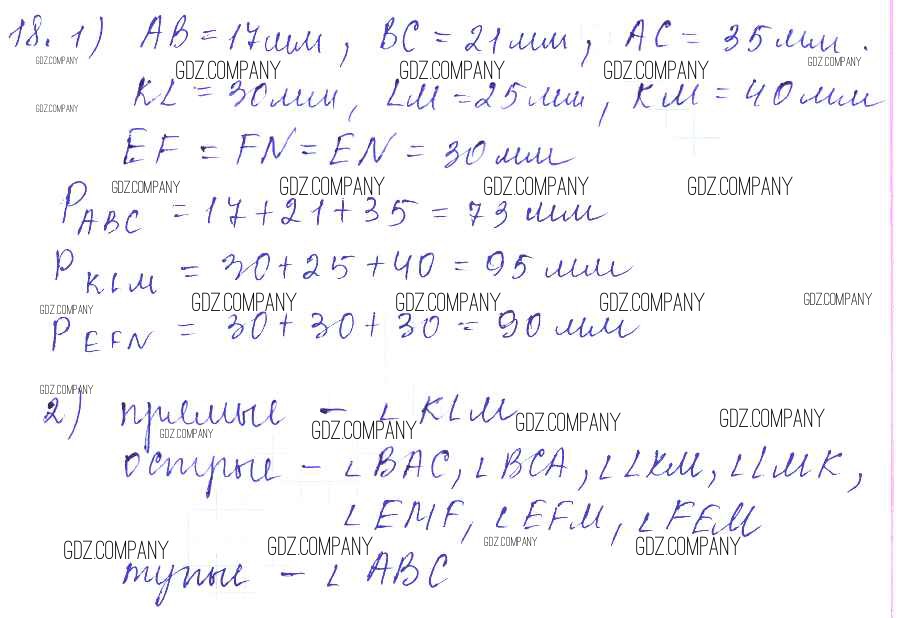 18. 1) AB = 17 мм, BC = 21 мм, AC = 35 мм.
GDZ.COMPANY GDZ.COMPANY GDZ.COMPANY GDZ.COMPANY GDZ.COMPANY
KL = 30 мм, LM = 25 мм, KM = 40 мм
GDZ.COMPANY
EF = FN = EN = 30 мм
GDZ.COMPANY GDZ.COMPANY GDZ.COMPANY GDZ.COMPANY
P ABC = 17 + 21 + 35 = 73 мм
P KLM = 30 + 25 + 40 = 95 мм
GDZ.COMPANY GDZ.COMPANY GDZ.COMPANY GDZ.COMPANY GDZ.COMPANY
P EFN = 30 + 30 + 30 = 90 мм
GDZ.COMPANY
2) прямые - ∠KLM
GDZ.COMPANY GDZ.COMPANY GDZ.COMPANY GDZ.COMPANY
острые - ∠BAC, ∠BCA, ∠LKM, ∠LMK,
∠EMF, ∠EFM, ∠FEM
GDZ.COMPANY GDZ.COMPANY GDZ.COMPANY GDZ.COMPANY
тупые - ∠ABC